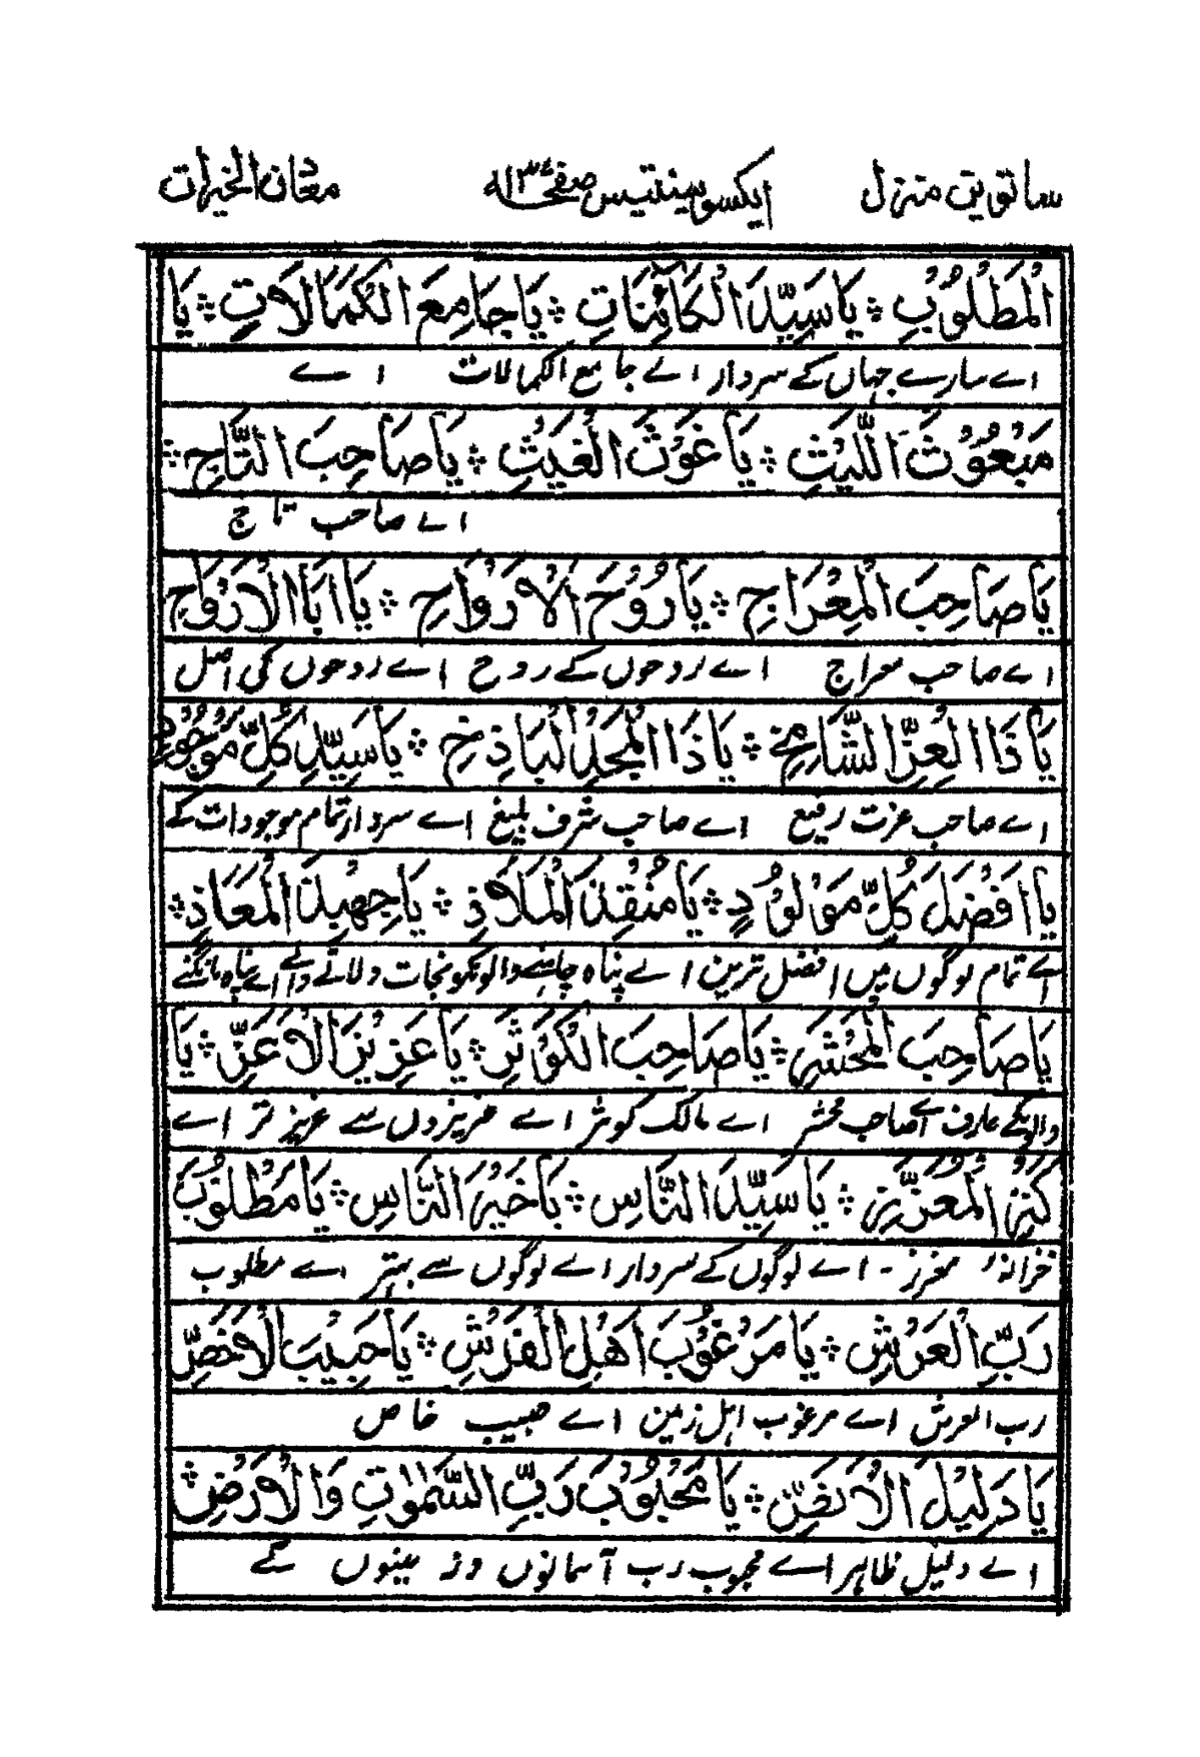 ساتویں منزل ایکسو سینتیس صفحہ ۱۳۷ معدن الخیرات
الْمَطْلُوْبِ یَا سَیِّدَ الْکَائِنَاتِ یَا جَامِعَ الْکَمَالَاتِ یَا
اے سارے جہاں کے سردار اے جامع الکمالات اے
مَبْعُوْثَ اللَّیْثِ یَا غَوْثَ الْغَیْثِ یَا صَاحِبَ التَّاجِ
اے صاحب تاج
یَا صَاحِبَ الْمِعْرَاجِ یَا رُوْحَ الْاَرْوَاحِ یَا اَبَا الْاَرْوَاحِ
اے صاحب معراج اے روحوں کے روح اے روحوں کی اصل
یَا ذَا الْعِزِّ الشَّامِخِ یَا ذَا الْمَجْدِ الْبَاذِخِ یَا سَیِّدِ کُلِّ مَوْجُوْدٍ
اے صاحب عزت رفیع اے صاحب شرف بلیغ اے سردار تمام موجودات کے
یَا اَفْضَلَ کُلِّ مَوْلُوْدٍ یَا مُنْقِذَ الْمَلَاذِ یَا جِهْبِذَ الْمَعَاذِ
اے تمام لوگوں میں افضل ترین اے پناہ چاہنے والونکو نجات دلانے والے اے پناہ مانگنے
یَا صَاحِبَ الْمَحْشَرِ یَا صَاحِبَ الْکَوْثَرِ یَا عَزِیْزَ الْاَعَزِّ یَا
والونکے عارف اے صاحب محشر اے مالک کوثر اے عزیزوں سے عزیز تر اے
کَنْزَ الْمُعَزَّزِ یَا سَیِّدَ النَّاسِ یَا خَیْرَ النَّاسِ یَا مَطْلُوْبَ
خزانہ - اے لوگوں کے سردار اے لوگوں سے بہتر اے مطلوب
رَبِّ الْعَرْشِ یَا مَرْغُوْبَ اَهْلِ الْفَرْشِ یَا حَبِیْبَ الْاَخَصِّ
رب العرش اے مرغوب اہل زمین اے حبیب خاص
یَا دَلِیْلَ الْاَنَصِّ یَا مَحْبُوْبَ رَبِّ السَّمٰوٰتِ وَالْاَرْضِ
اے دلیل ظاہر اے محبوب رب آسمانوں و زمینوں کے